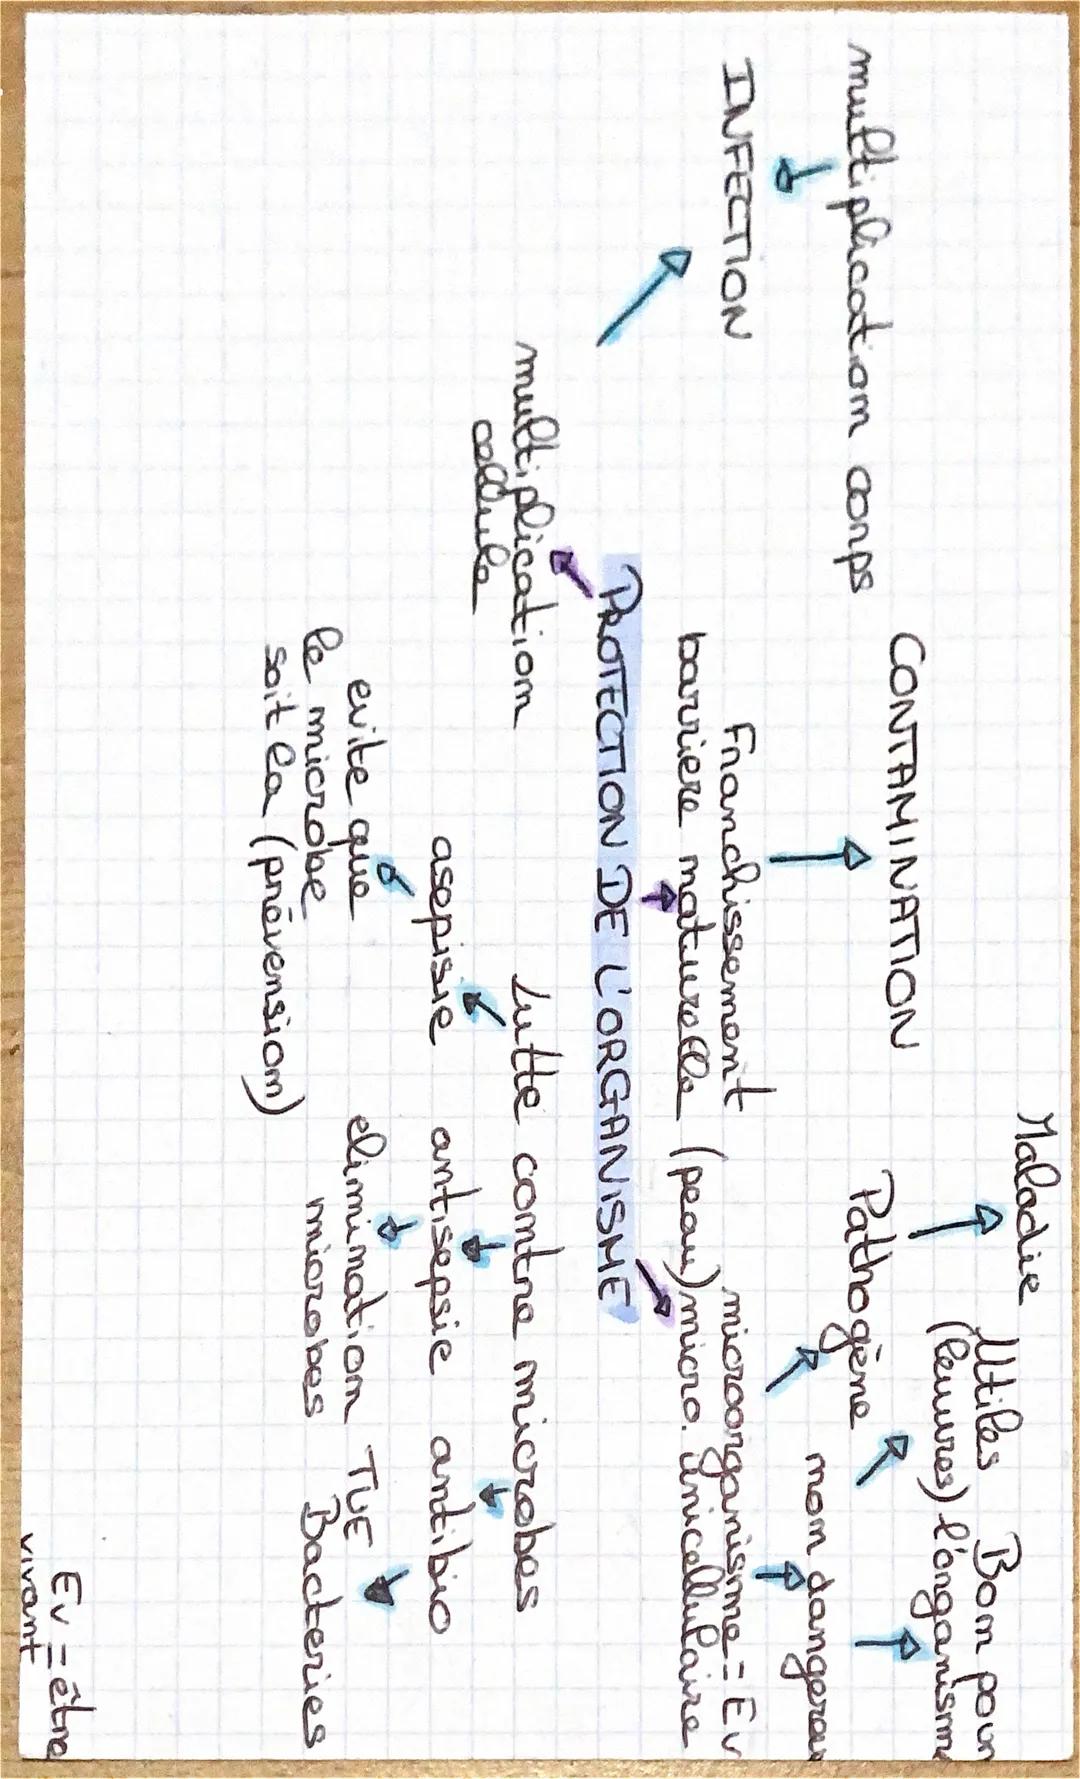 Maladie
Utiles
(levures)
Bon pour
l'organism
CONTAMINATION
Pathogène
non dangereu
multiplication corps
INFECTION
Franchissement
barriere naturelle (peau)
microorganisme = Ev
micro. unicellulaire
PROTECTION DE L'ORGANISME
multiplication
cellule
Lutte contre microbes
asepisie
antisepsie
antibio
evite que
le microbe
soit la (prévension)
elimination
microbes
TUE
Bacteries
Ev = être
vivant